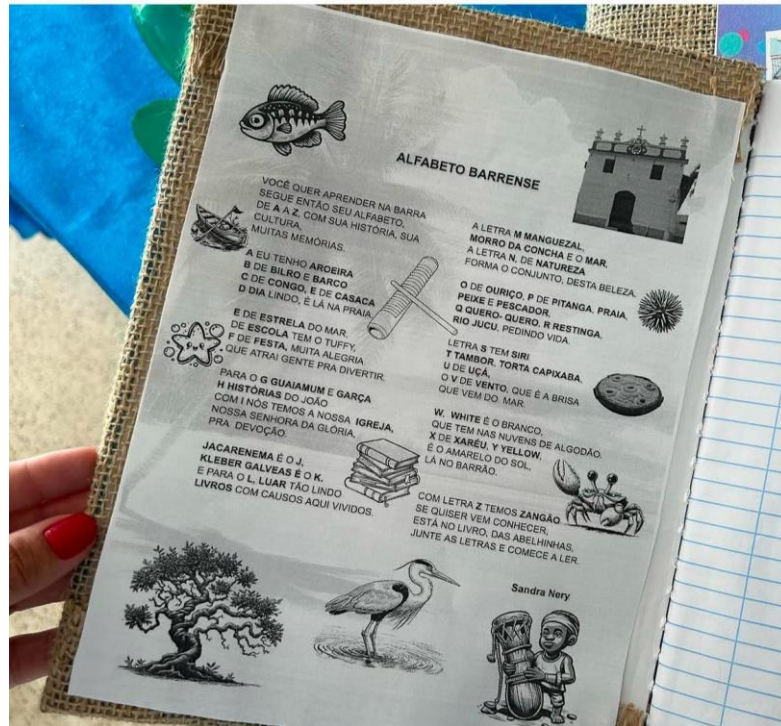 ALFABETO BARRENSE
VOCÊ QUER APRENDER NA BARRA
SEGUE ENTÃO SEU ALFABETO,
DE A A Z, COM SUA HISTÓRIA, SUA
CULTURA,
MUITAS MEMÓRIAS.
A EU TENHO AROEIRA
B DE BILRO E BARCO
C DE CONGO, E DE CASACA
D DIA LINDO, É LÁ NA PRAIA
E DE ESTRELA DO MAR,
DE ESCOLA TEM O TUFFY,
F DE FESTA, MUITA ALEGRIA
QUE ATRAI GENTE PRA DIVERTIR.
PARA O G GUAIAMUM E GARÇA
H HISTÓRIAS DO JOÃO
COM I NÓS TEMOS A NOSSA IGREJA,
NOSSA SENHORA DA GLÓRIA,
PRA DEVOÇÃO.
JACARENEMA É O J,
KLEBER GALVEAS É O K.
E PARA O L, LUAR TÃO LINDO
LIVROS COM CAUSOS AQUI VIVIDOS.
A LETRA M MANGUEZAL,
MORRO DA CONCHA E O MAR,
A LETRA N, DE NATUREZA
FORMA O CONJUNTO, DESTA BELEZA.
O DE OURIÇO, P DE PITANGA, PRAIA,
PEIXE E PESCADOR,
Q QUERO- QUERO, R RESTINGA,
RIO JUCU, PEDINDO VIDA.
LETRA S TEM SIRI
T TAMBOR, TORTA CAPIXABA,
U DE UÇÁ,
O V DE VENTO, QUE É A BRISA
QUE VEM DO MAR.
W, WHITE É O BRANCO,
QUE TEM NAS NUVENS DE ALGODÃO.
X DE XARÉU, Y YELLOW,
É O AMARELO DO SOL,
LÁ NO BARRÃO.
COM LETRA Z TEMOS ZANGÃO
SE QUISER VEM CONHECER,
ESTÁ NO LIVRO, DAS ABELHINHAS,
JUNTE AS LETRAS E COMECE A LER.
Sandra Nery